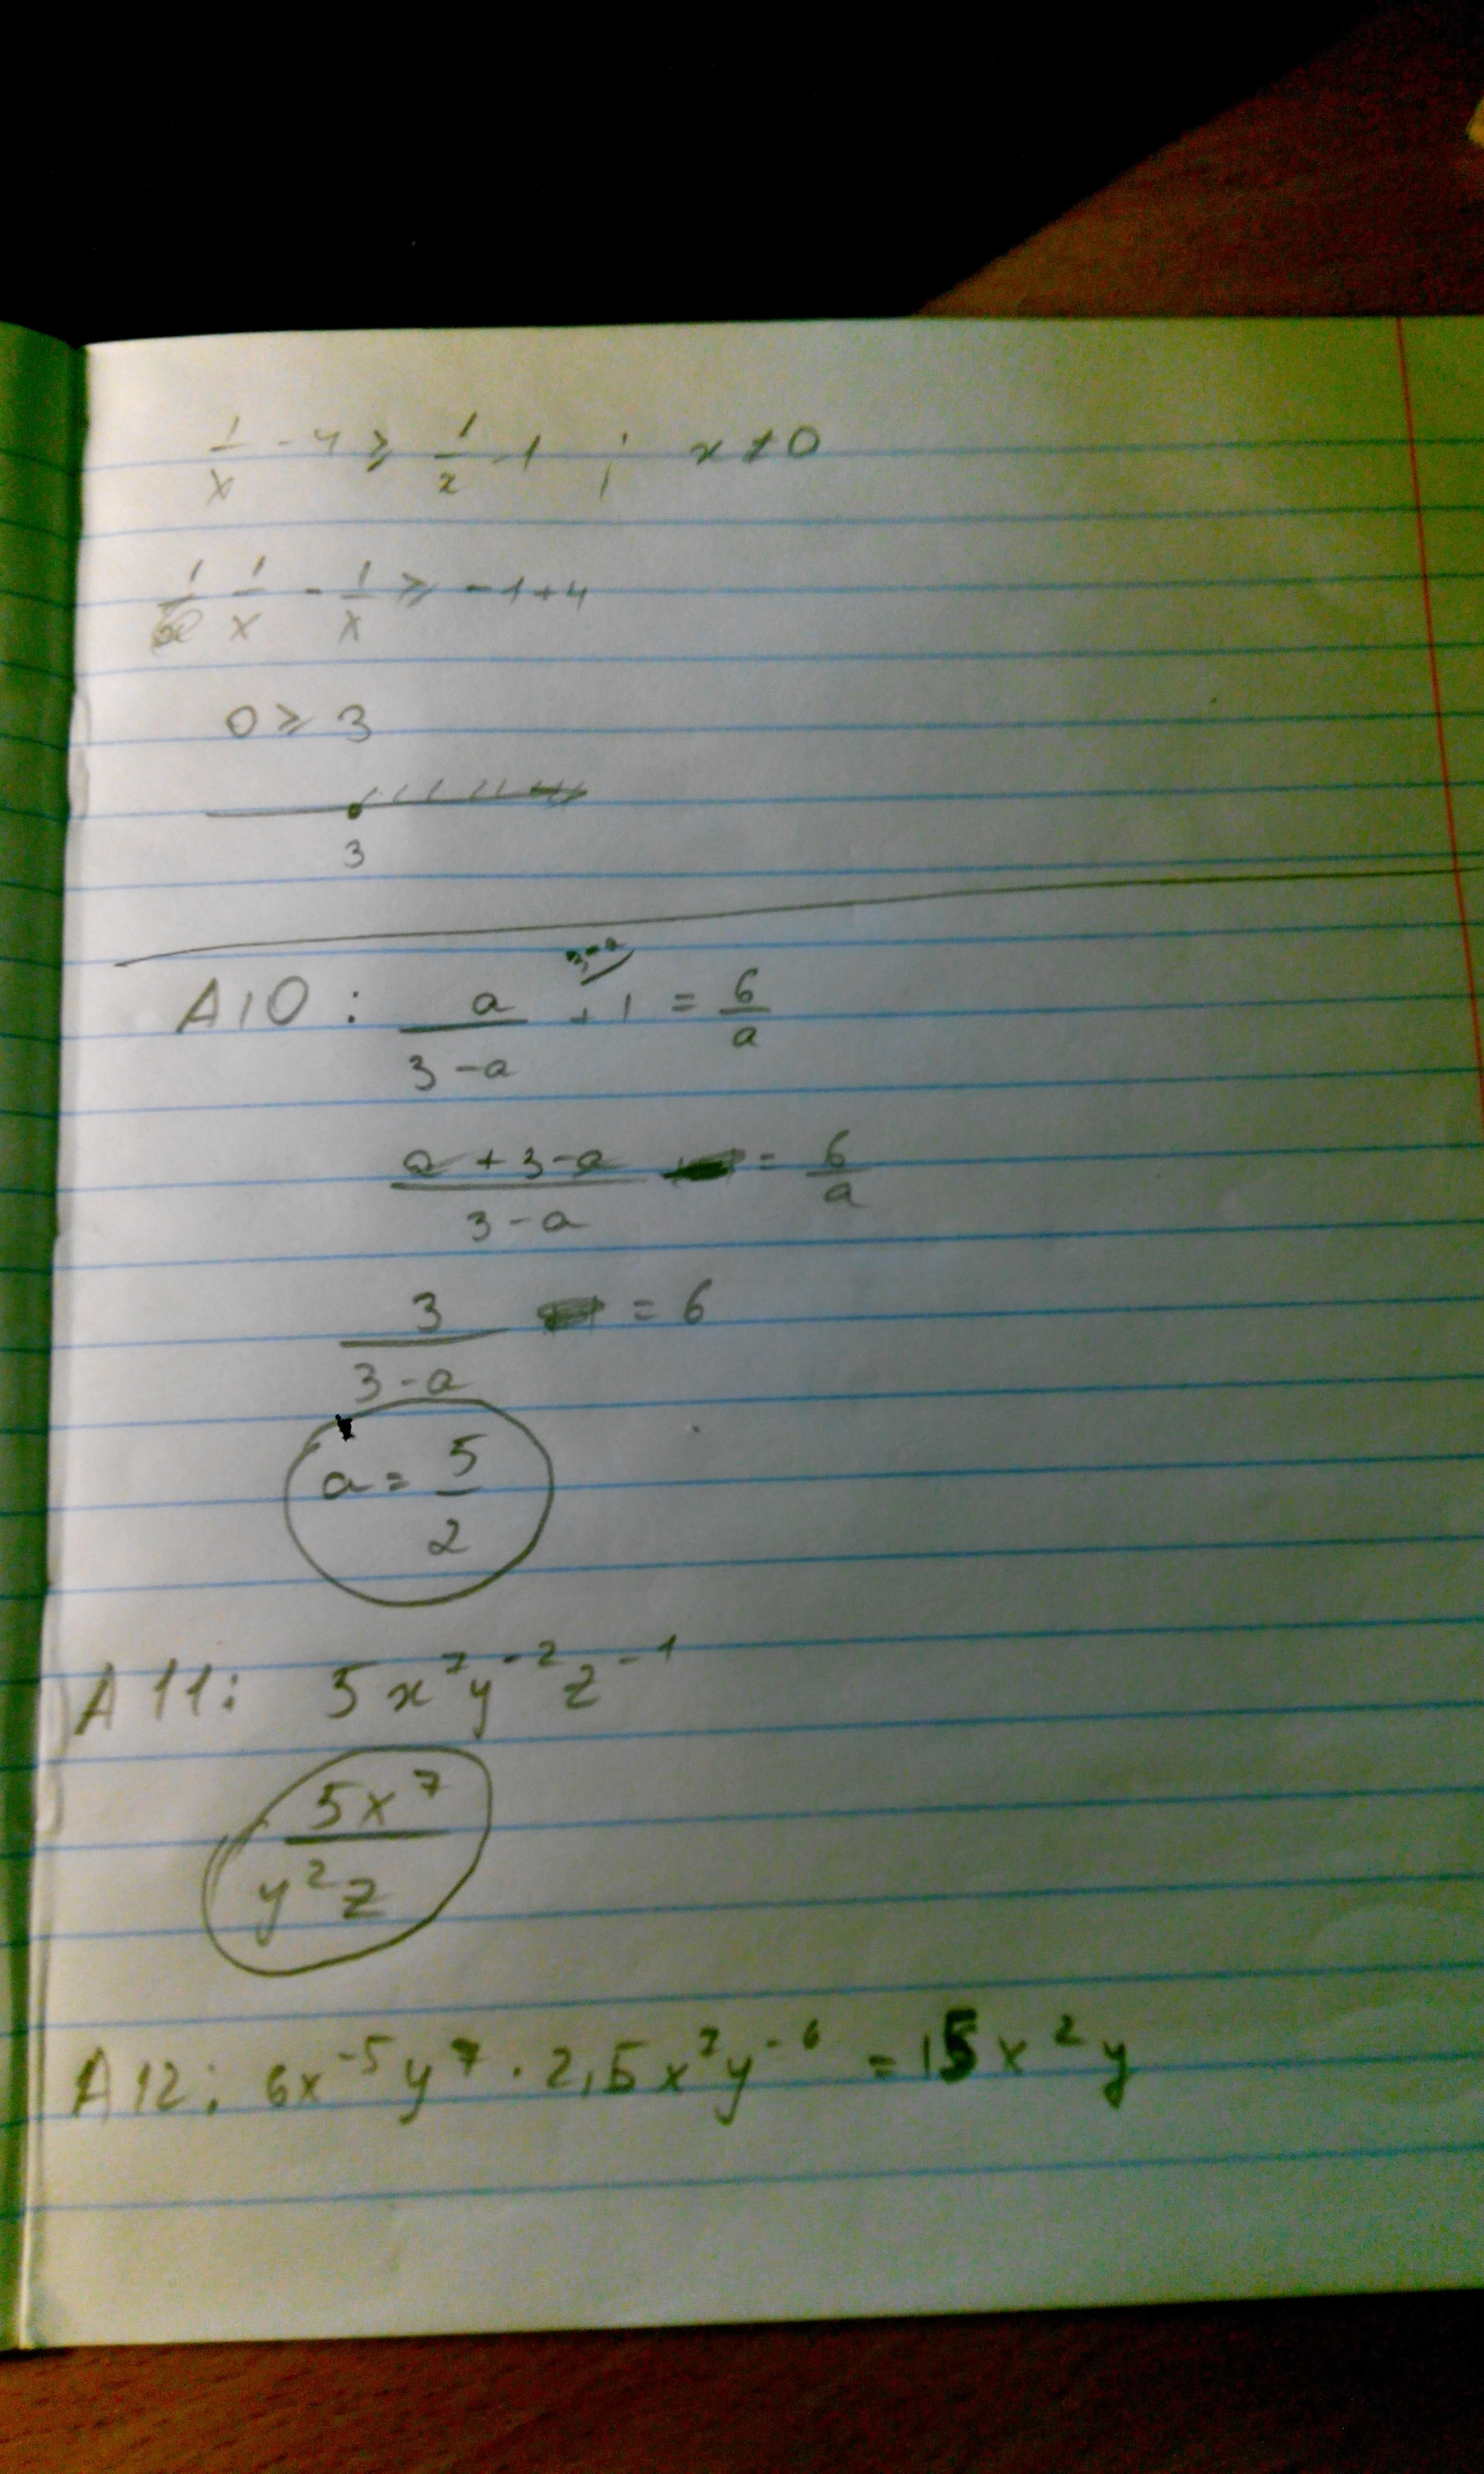 1/x - 4 ⩾ 1/x - 1 ; x ≠ 0
1/x - 1/x ⩾ -1+4
0 ⩾ 3
3
A10: a/(3-a) + 1 = 6/a
3-a
(a+3-a)/(3-a) = 6/a
3/(3-a) = 6
a = 5/2
A11: 5x⁷y⁻²z⁻¹
5x⁷/y²z
A12: 6x⁻⁵y⁷ · 2,5x⁷y⁻⁶ = 15x²y